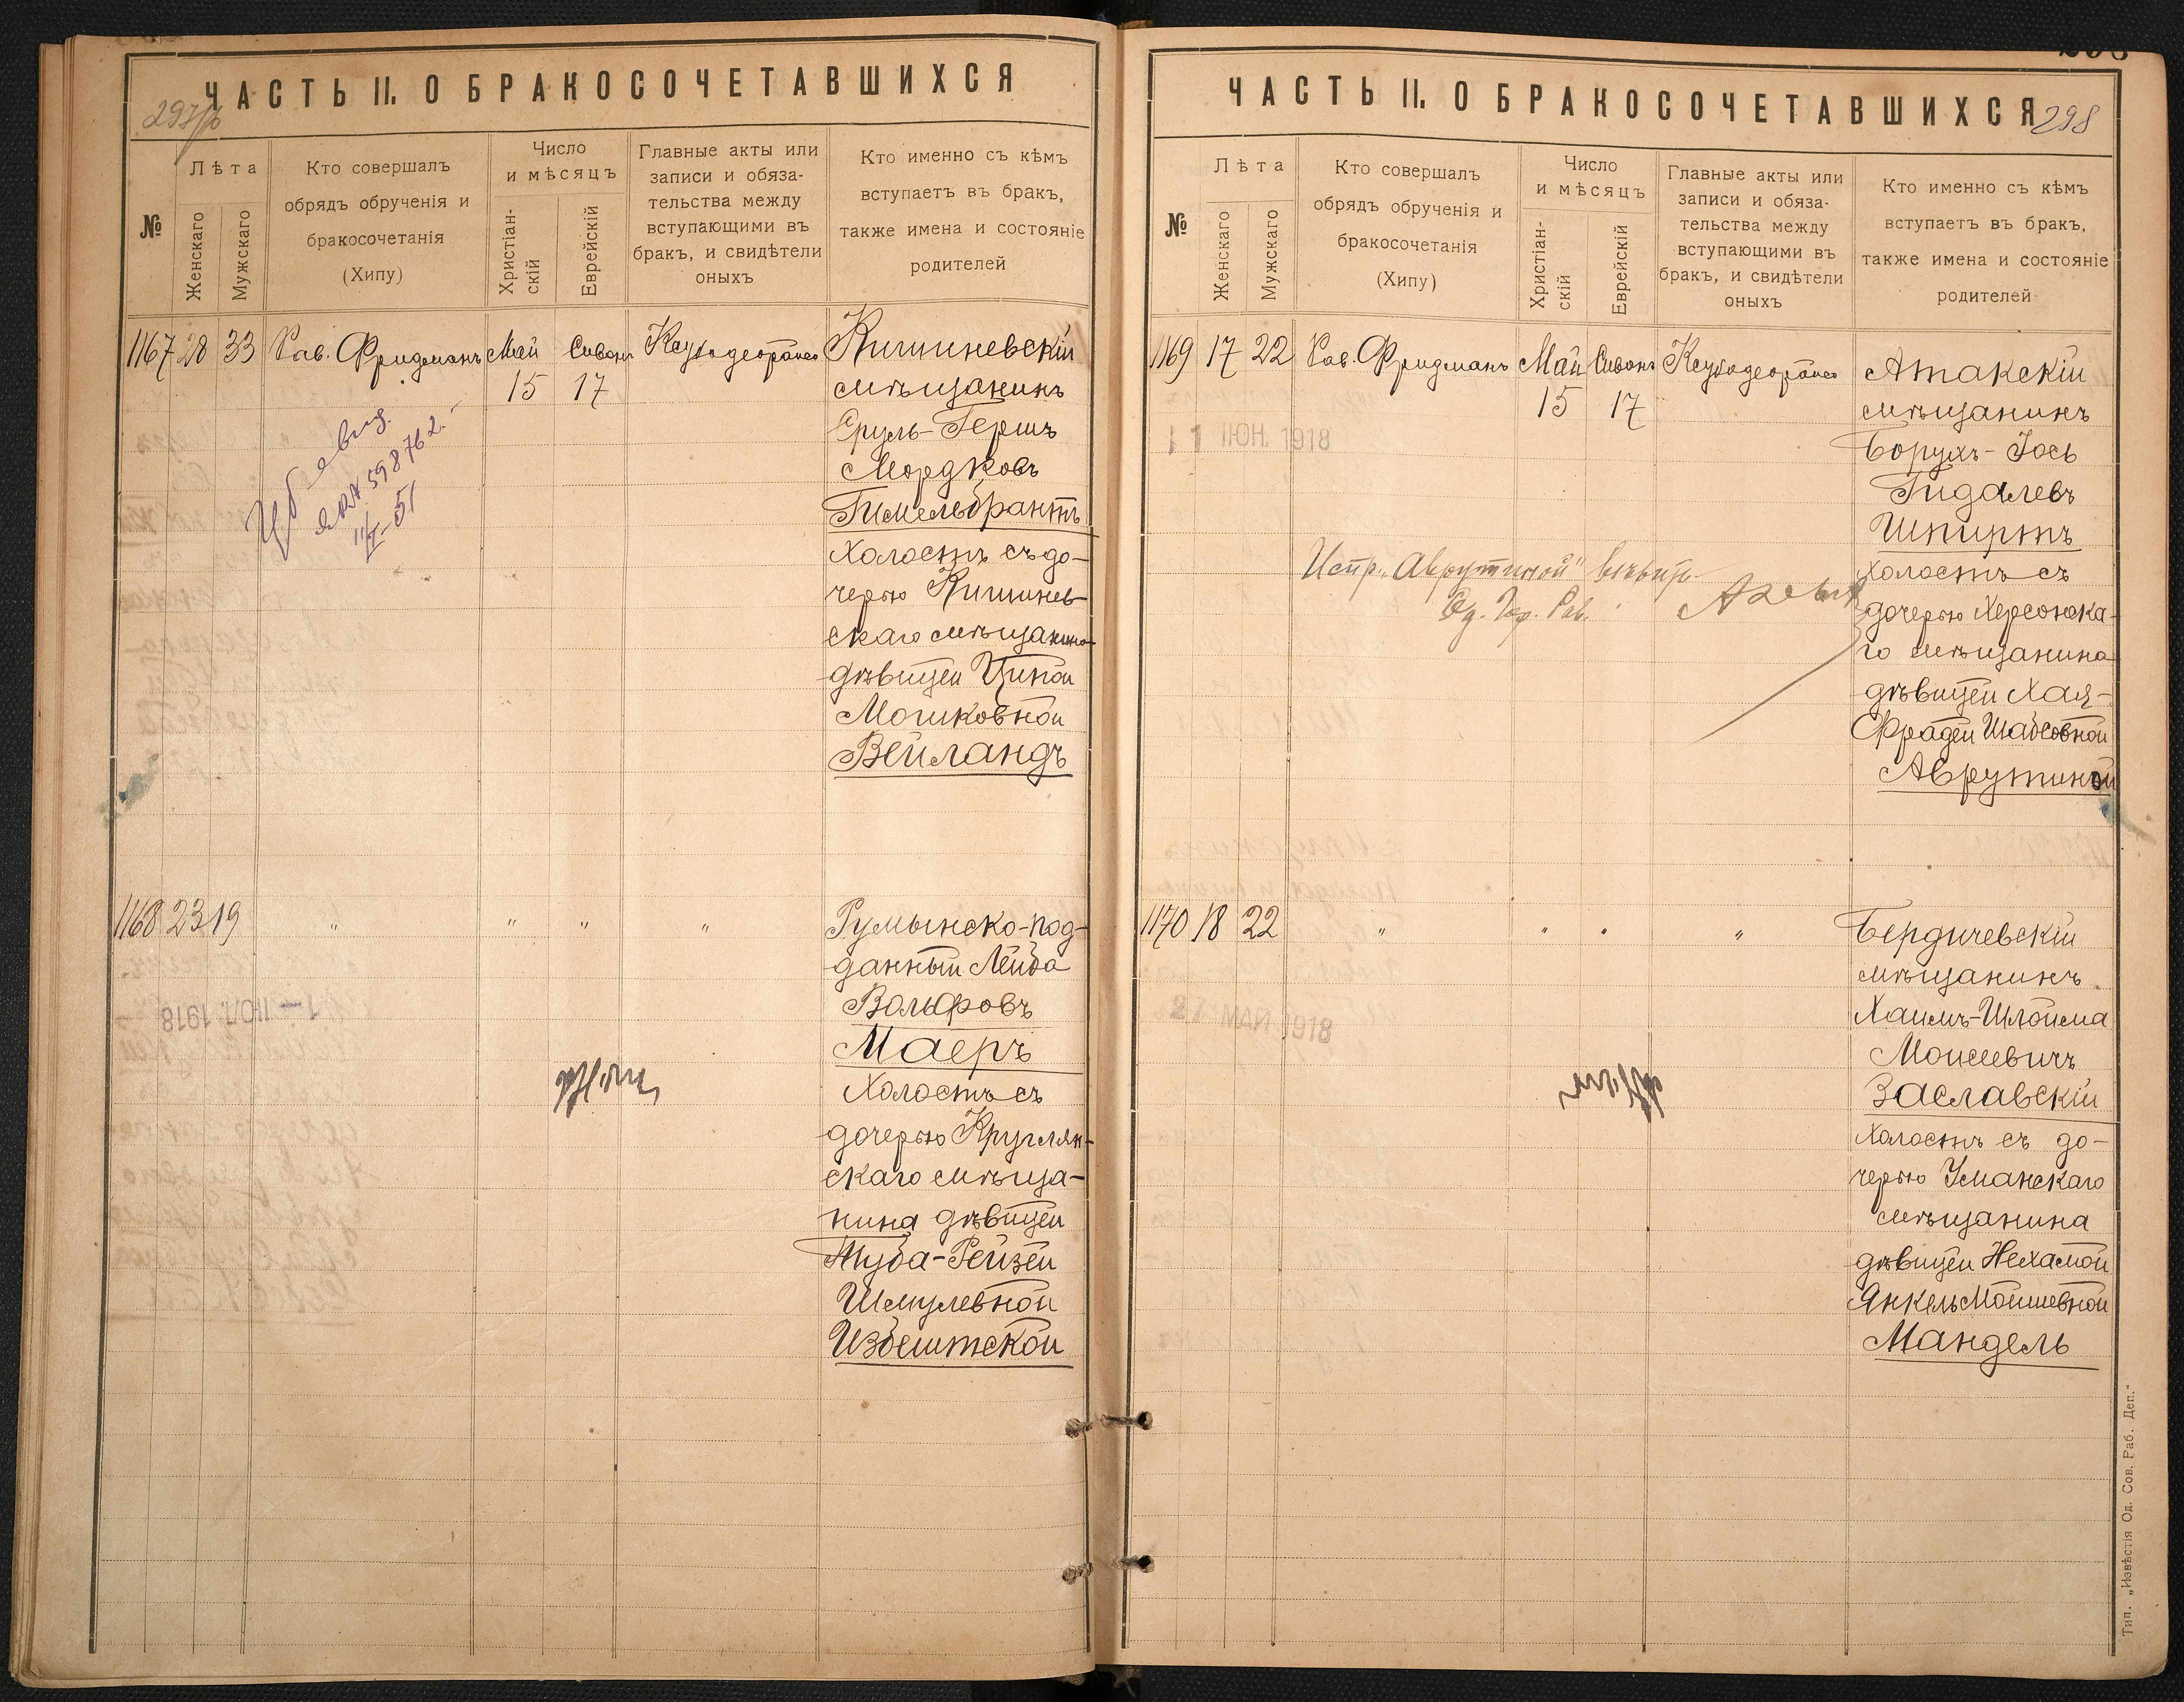 ЧАСТЬ II. О БРАКОСОЧЕТАВШИХСЯ
№
Лѣта
Женскаго
Мужскаго
Кто совершалъ
обрядъ обрученія и
бракосочетанія
(Хипу)
Число
и мѣсяцъ
Христіан-
скій
Еврейскій
Главные акты или
записи и обяза-
тельства между
вступающими въ
бракъ, и свидѣтели
оныхъ
Кто именно съ кѣмъ
вступаетъ въ бракъ,
также имена и состояніе
родителей
1167 28 33 Рав. Фридманъ Май Сивонъ
15 17
Кишиневскій
мѣщанинъ
Сруль-Гершъ
Мордковъ
Гимельбрантъ
Холостъ съ до-
черью Кишинев-
скаго мѣщанина
дѣвицей Ципой
Мошковной
Вейландъ
1168 23 19 " " " "
Румынско-под-
данный Лейба
Вольфовъ
Маеръ
Холостъ съ
дочерью Круглян-
скаго мѣща-
нина дѣвицей
Туба-Рейзей
Шмулевной
Избештской
ЧАСТЬ II. О БРАКОСОЧЕТАВШИХСЯ
298
№
Лѣта
Женскаго
Мужскаго
Кто совершалъ
обрядъ обрученія и
бракосочетанія
(Хипу)
Число
и мѣсяцъ
Христіан-
скій
Еврейскій
Главные акты или
записи и обяза-
тельства между
вступающими въ
бракъ, и свидѣтели
оныхъ
Кто именно съ кѣмъ
вступаетъ въ бракъ,
также имена и состояніе
родителей
1169 17 22 Рав. Фридманъ Май Сивонъ
15 17
11 ІЮН. 1918
Атакскій
мѣщанинъ
Борухъ-Іось
Гидалевъ
Шпиртъ
Холостъ съ
дочерью Херсонска-
го мѣщанина
дѣвицей Хая-
Фрадей Шабсовной
Аврутиной
Испр. „Аврутиной"
Од. Гор. Рав.
1170 18 22 " " " "
27 МАЙ 1918
Бердичевскій
мѣщанинъ
Хаимъ-Шлойма
Моисеевичъ
Заславскій
Холостъ съ до-
черью Уманскаго
мѣщанина
дѣвицей Нехамой
Янкель Мойшевной
Мандель
Тип. „Извѣстія Од. Сов. Раб. Деп."